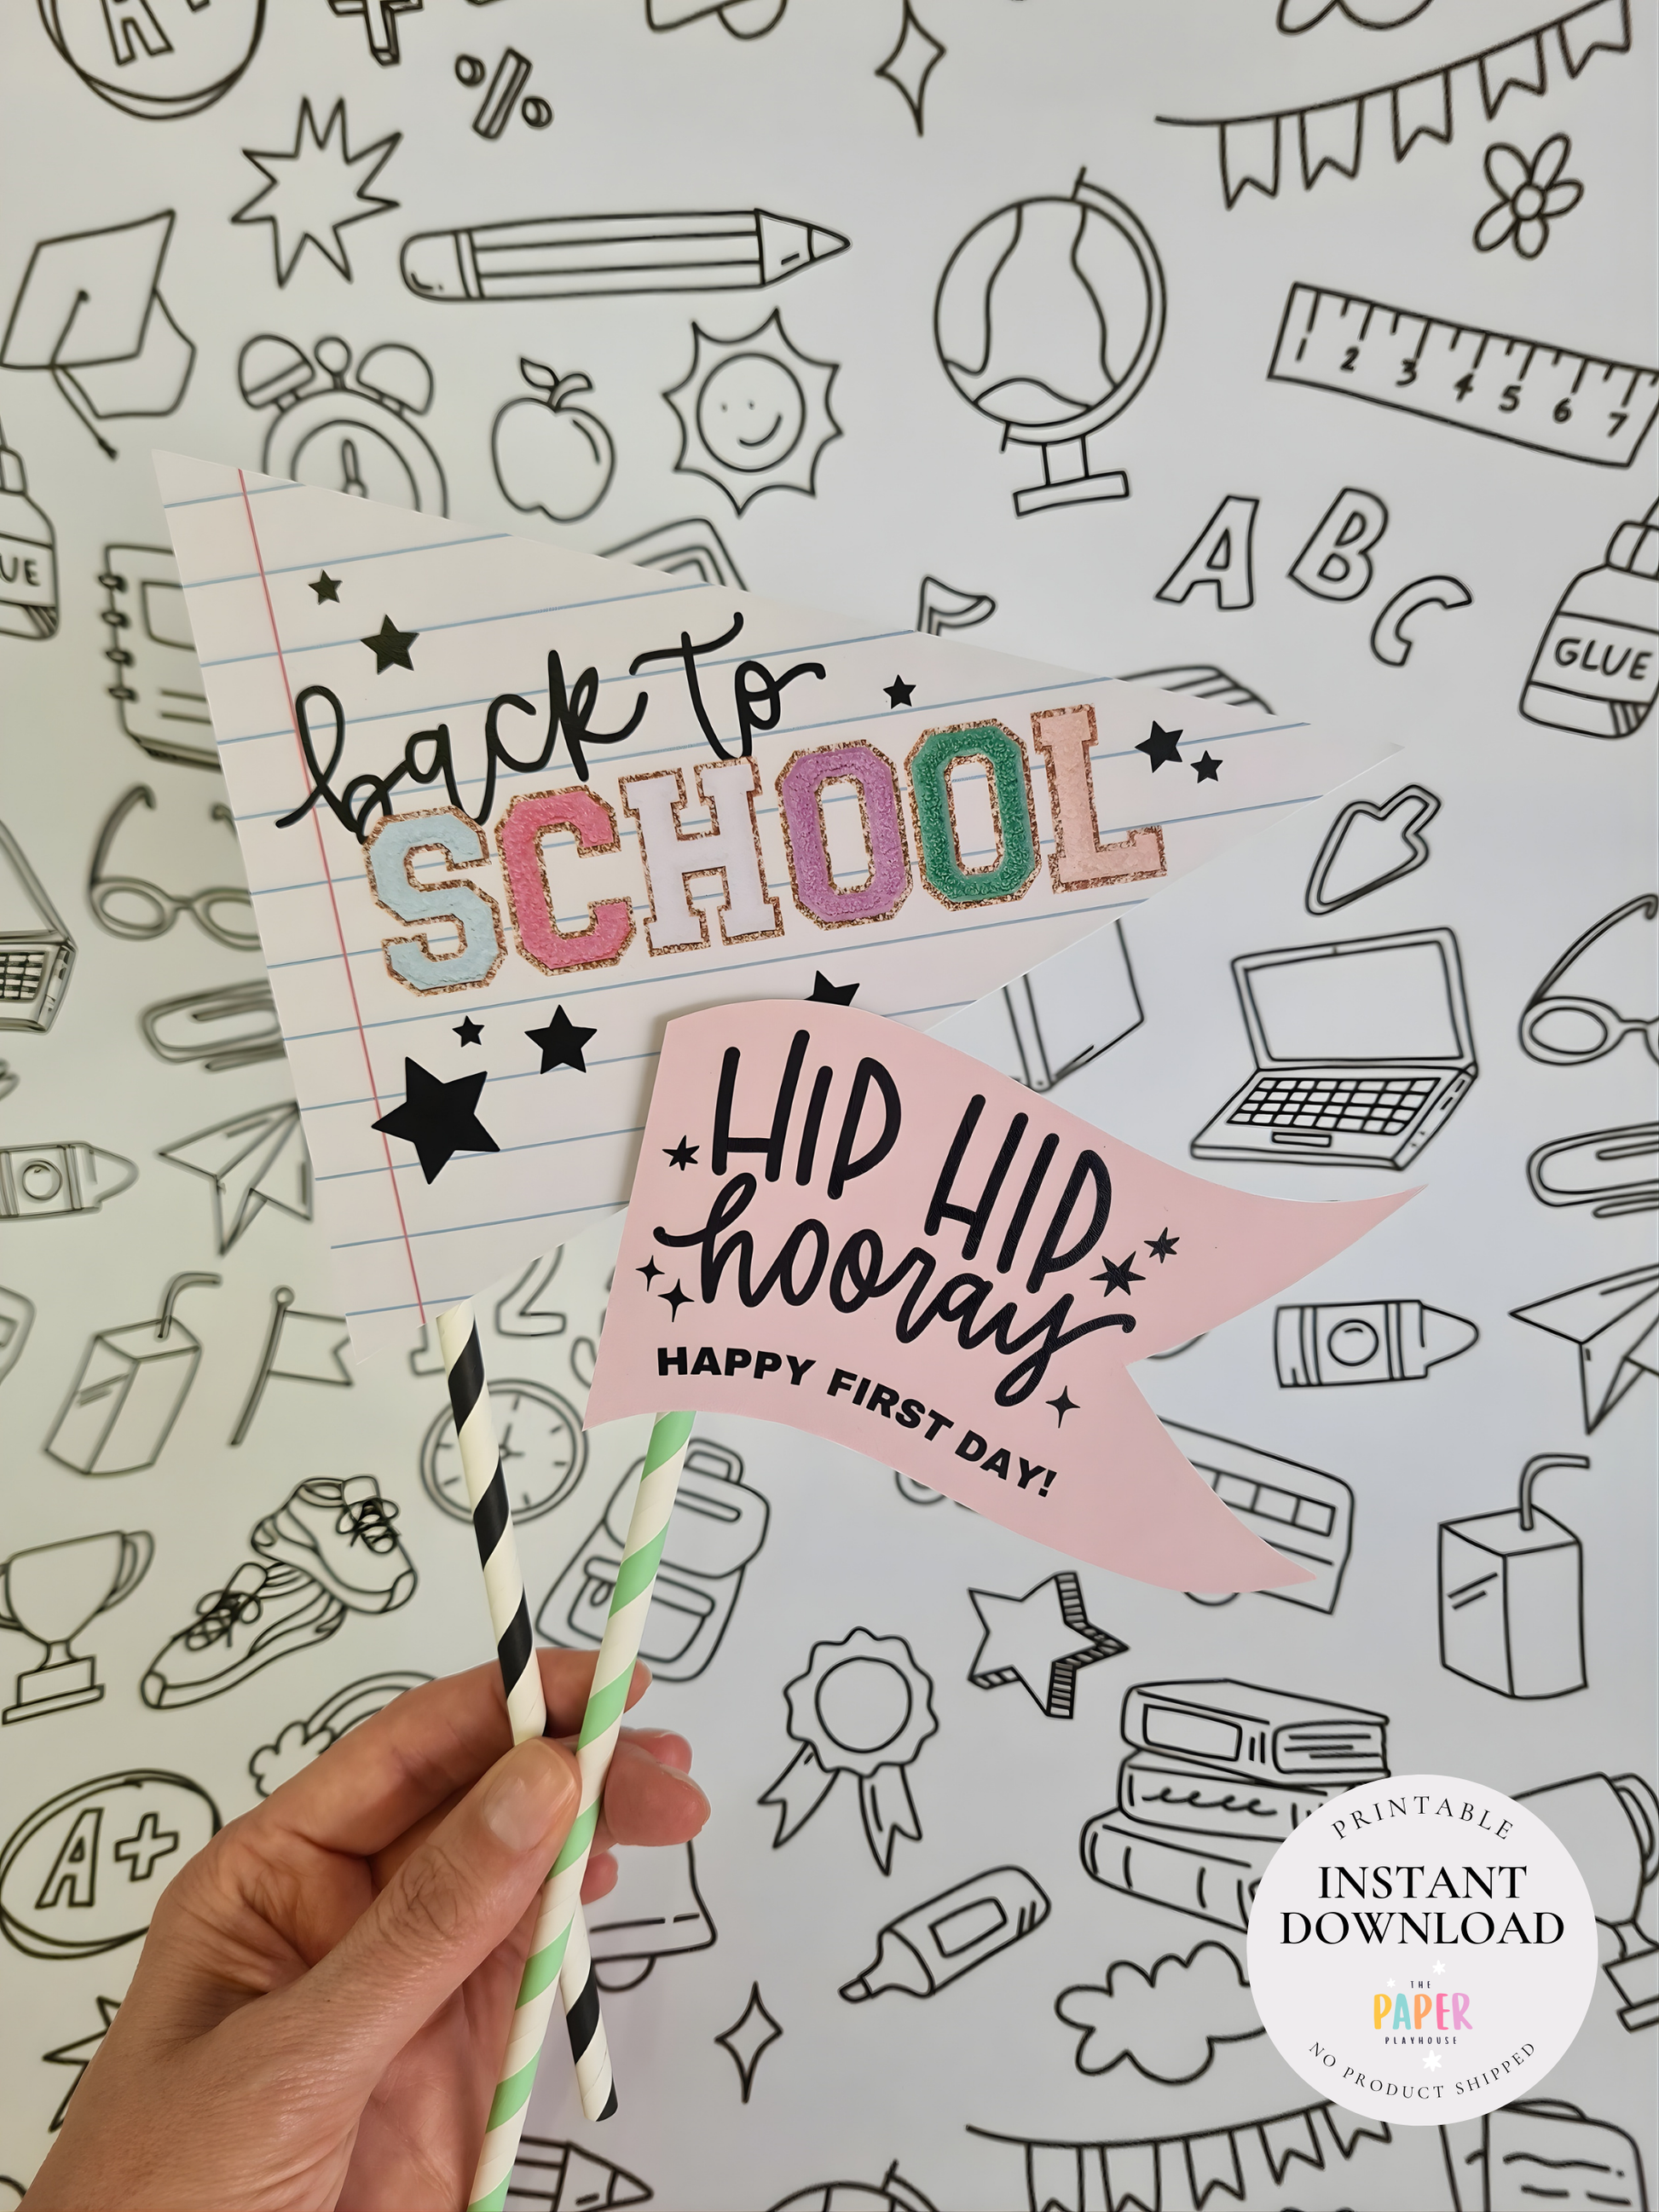 A+
%
1 2 3 4 5 6 7
A B C
UE
GLUE
back to
SCHOOL
HIP HIP
hooray
HAPPY FIRST DAY!
2
A+
PRINTABLE
INSTANT
DOWNLOAD
THE
PAPER
PLAYHOUSE
NO PRODUCT SHIPPED